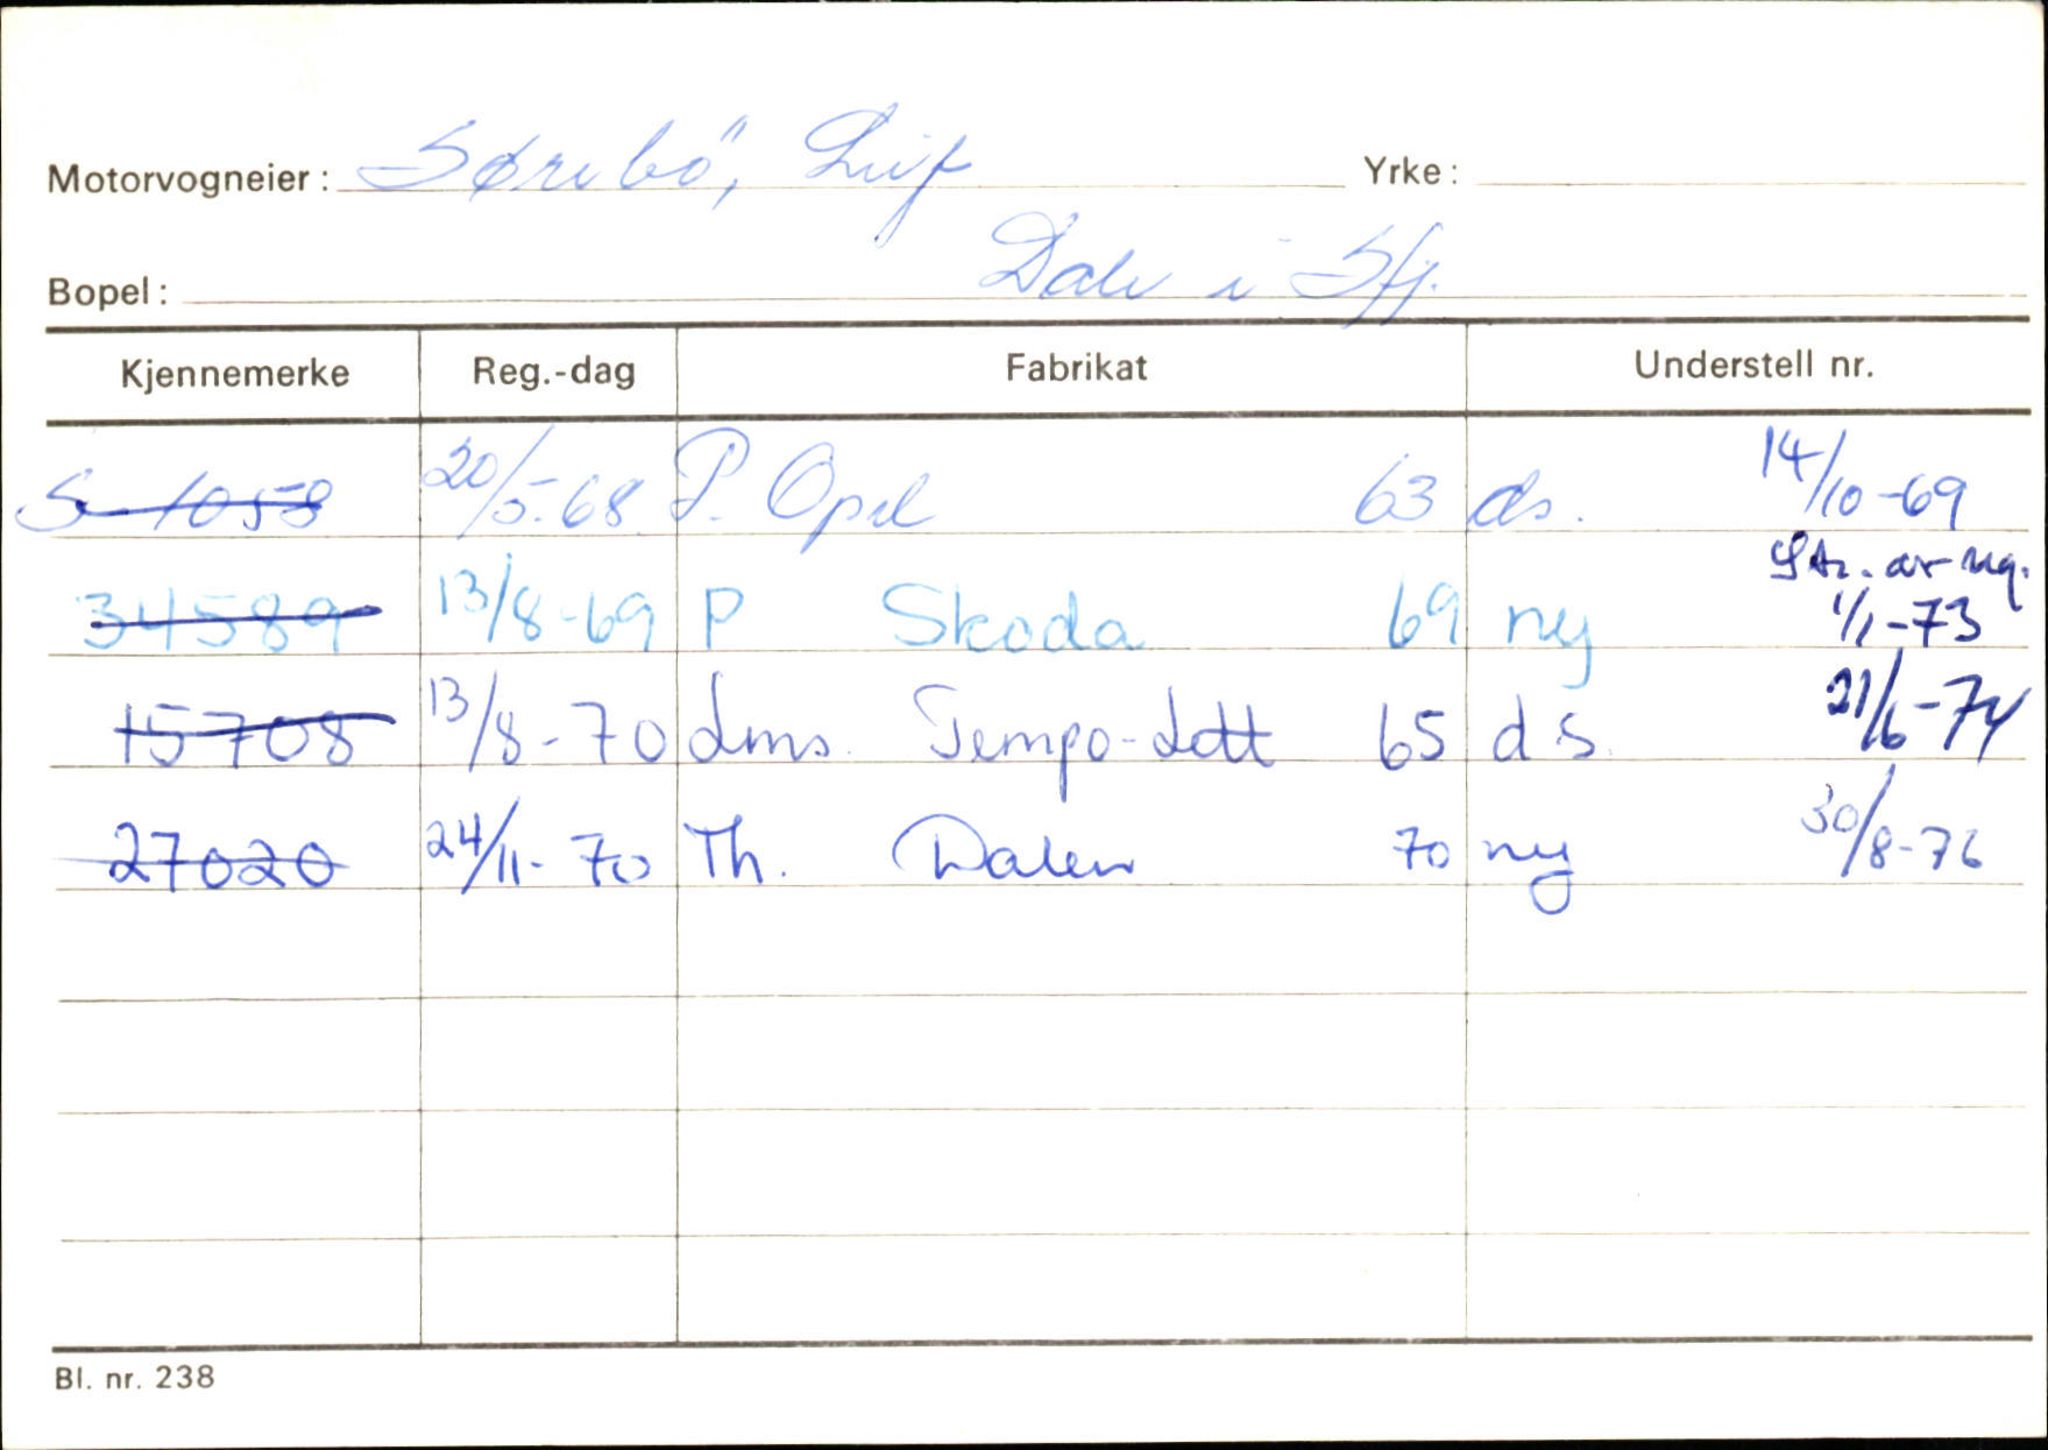 Motorvogneier: Sørebö, Leif Yrke:
Bopel: Dale i Sfj.
Kjennemerke Reg.-dag Fabrikat Understell nr.
S-1058 20/5.68 P. Opel 63 ds. 14/10-69
34589 13/8-69 P Skoda 69 ny Str. av reg. 1/1-73
15708 13/8-70 Lms. Tempo-Lett 65 ds. 21/6-74
27020 24/11-70 Th. Dalen 70 ny 30/8-76
Bl. nr. 238